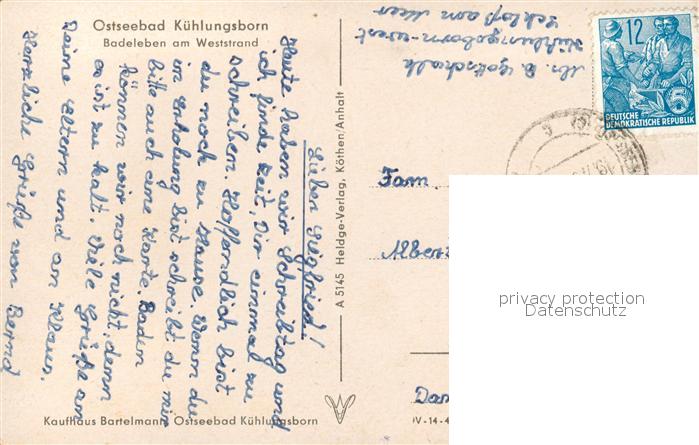 Ostseebad Kühlungsborn
Badeleben am Weststrand
Lieber Siegfried!
Heute haben wir Schreibtag und
ich finde Zeit, Dir einmal zu
schreiben. Hoffendlich bist
du noch zu Hause. Wenn du
im Erholung bist schreibt du mir
bitte auch eine Karte. Baden
können wir noch nicht, denn
es ist zu kalt. Viele Grüße an
Deine Eltern und an Klaus.
Herzliche Grüße von Bernd
Kaufhaus Bartelmann, Ostseebad Kühlungsborn
A 5145 Heldge-Verlag, Köthen/Anhalt
Abs. B. Gottschalk
Kühlungsborn-west
Schloß am Meer
12
5
DEUTSCHE
DEMOKRATISCHE REPUBLIK
Fam.
Albert
privacy protection
Datenschutz
IV-14-4